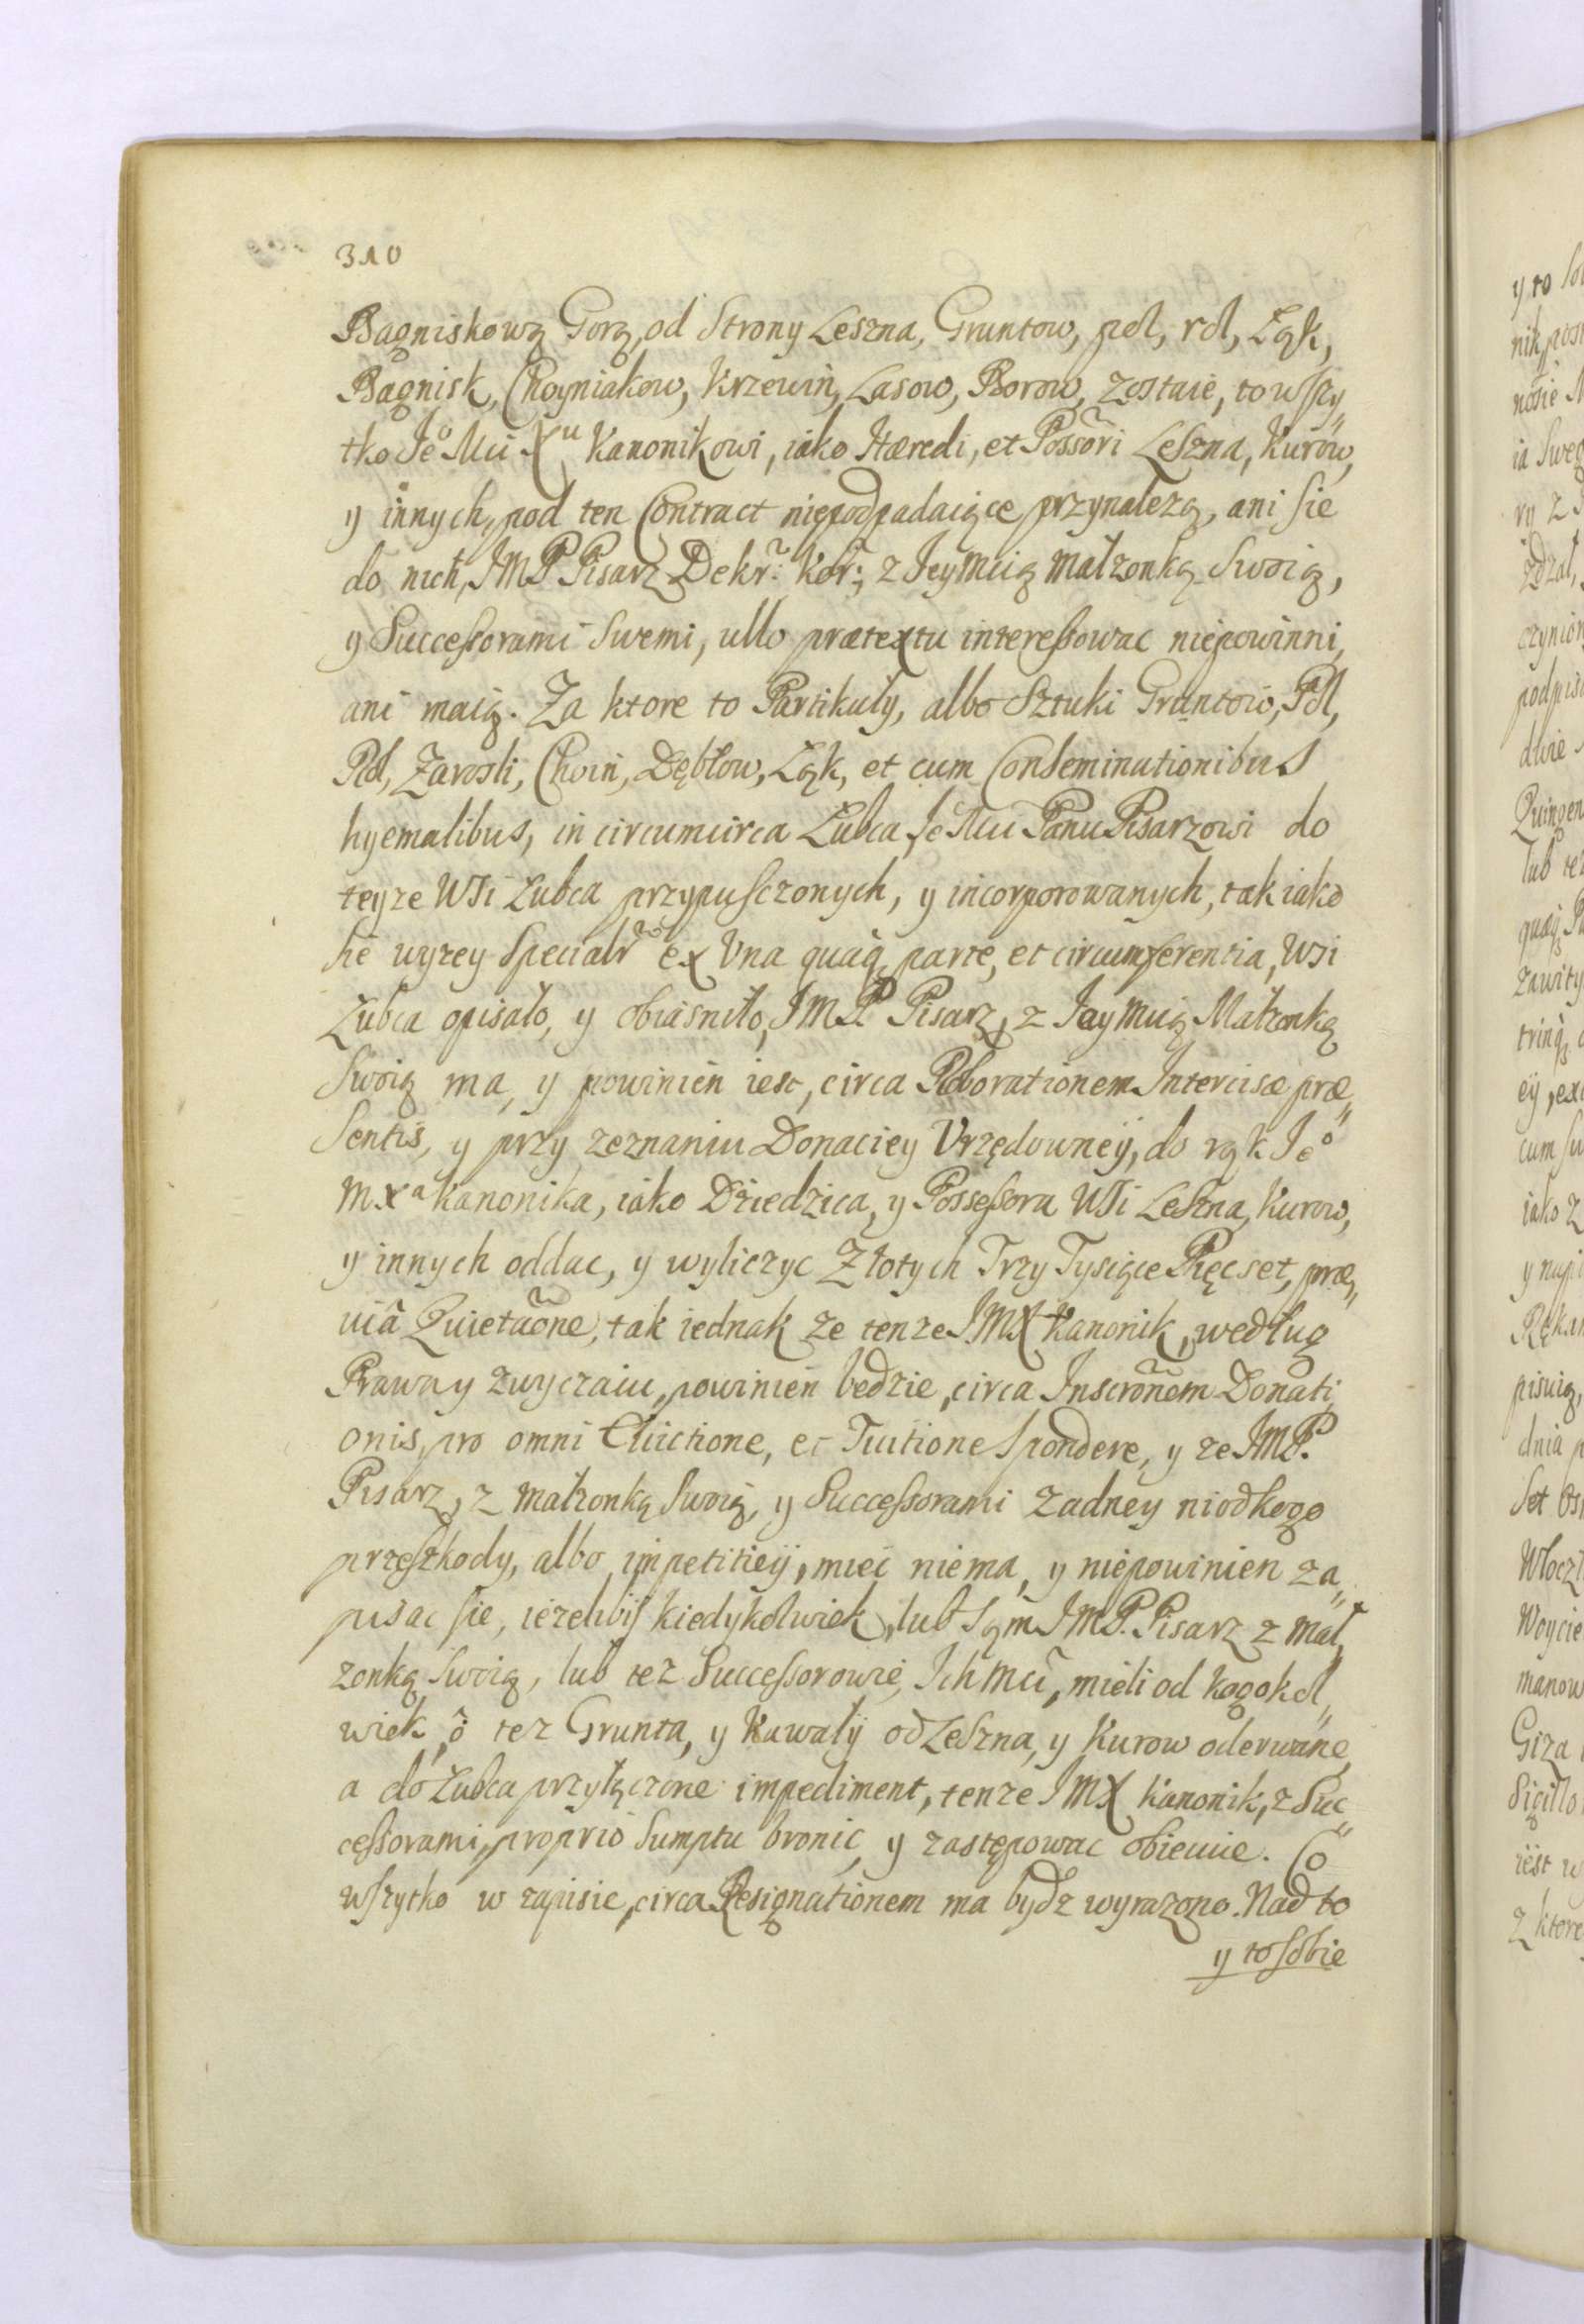 310
Bagniskową Gorą, od Strony Leszna, Gruntow, pol, rol, Łąk,
Bagnisk, Choyniakow, Krzewin, Lasow, Borow, zostaie, to wszy„
tko Jeo Mci Xu Kanonikowi, iako Hæredi, et Possori Leszna, Kurow,
y innych, pod ten Contract niepodpadaiące przynalezą, ani sie
do nich, JMP Pisarz Dekr: Kor: z Jeymcią małzonką Swoią,
y Successorami Swemi, ullo prætextu interessowac niepowinni,
ani maią. Za ktore to Partikuły, albo Sztuki Gruntow, Pol,
Rol, Zarosli, Choin, Dębłow, Łąk, et cum Conseminationibus
hyemalibus, in circumcirca Łubca Je Mci Panu Pisarzowi do
teyze WSi Łubca przypusczonych, y incorporowanych, tak iako
sie wyzey Specialr ex Una quaq parte, et circumferentia, WSi
Łubca opisało, y obiasniło, JMP Pisarz, z Jeymcią Małzonką
Swoią ma, y powinien iest, circa Roborationem Intercisæ præ„
sentis, y przy zeznaniu Donaciey Vrzędowneÿ, do rąk Jeo
M Xa Kanonika, iako Dziedzica, y Possessora WSi Leszna, Kurow,
y innych oddac, y wyliczyc Złotych Trzy Tysiące Pięcset, præ„
via Quietaone, tak iednak ze tenze JMX Kanonik, według
Prawa y zwyczaiu, powinien bedzie, circa Inscronem Donati
onis, pro omni Evictione, et Tuitione Spondere, y ze JMP.
Pisarz, z małzonką Swoią, y Successorami zadney niodkogo
przeszkody, albo impetitieÿ, miec niema, y niepowinien za„
pisac sie, iezeliby kiedykolwiek, lub Sąm JMP. Pisarz z mał„
zonką Swoią, lub tez Successorowie, Ich Mci, mieli od kogokol„
wiek, o tez Grunta, y Kawały od Leszna, y Kurow oderwane,
a do Łubca przyłączone impediment, tenze JMX Kanonik, z Suc„
cessorami, proprio Sumptu bronic, y zastępowac obiecuie. Co
wszytko w zapisie, circa Resignationem ma bydz wyrazono. Nad to
y to sobie